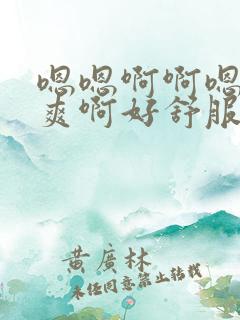 嗯嗯啊啊嗯
爽啊好舒服
黄廣林
未经同意禁止转载